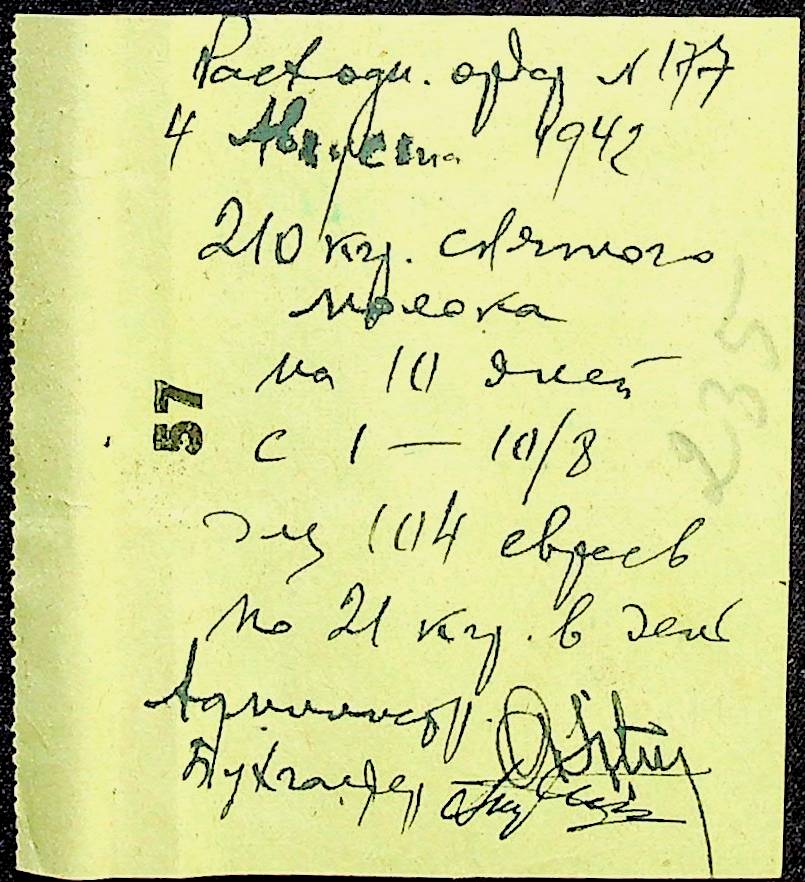 Расходн. ордер N 177
4 Августа 1942
210 кгр. снятого
молока
на 10 дней
с 1 — 10/8
для 104 евреев
по 21 кгр. в день
Администр.
Бухгалтер
57
235